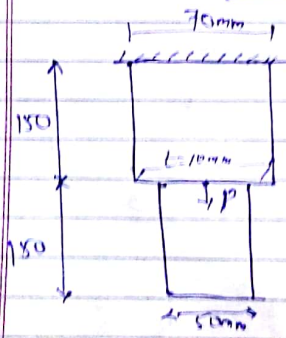 70mm
150
t=10mm
P
150
50mm